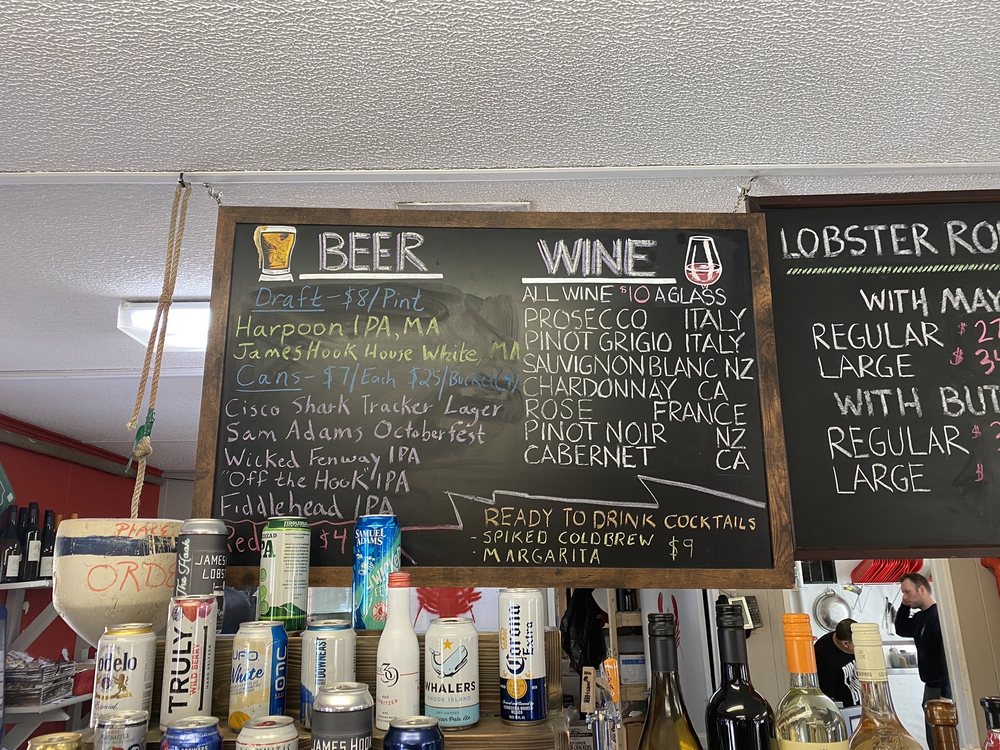 BEER
Draft - $8/Pint
Harpoon IPA, MA
James Hook House White, MA
Cans - $7/Each $25/Bucket(4)
Cisco Shark Tracker Lager
Sam Adams Octoberfest
Wicked Fenway IPA
"Off the Hook" IPA
Fiddlehead IPA
Red
$4
WINE
ALL WINE $10 A GLASS
PROSECCO ITALY
PINOT GRIGIO ITALY
SAUVIGNON BLANC NZ
CHARDONNAY CA
ROSE FRANCE
PINOT NOIR NZ
CABERNET CA
READY TO DRINK COCKTAILS
- SPIKED COLDBREW $9
- MARGARITA
LOBSTER RO
WITH MAY
REGULAR $2
LARGE $3
WITH BUT
REGULAR $
LARGE $
PLACE
ORD
the Hook
JAMES
LOBS
SAMUEL
ADAMS
odelo
TRULY
WILD BERRY
UFO
White
UFO
DOWNEAST
JAMES HOOK
WHALERS
RHODE ISLAND
Pale Ale
Corona
Extra